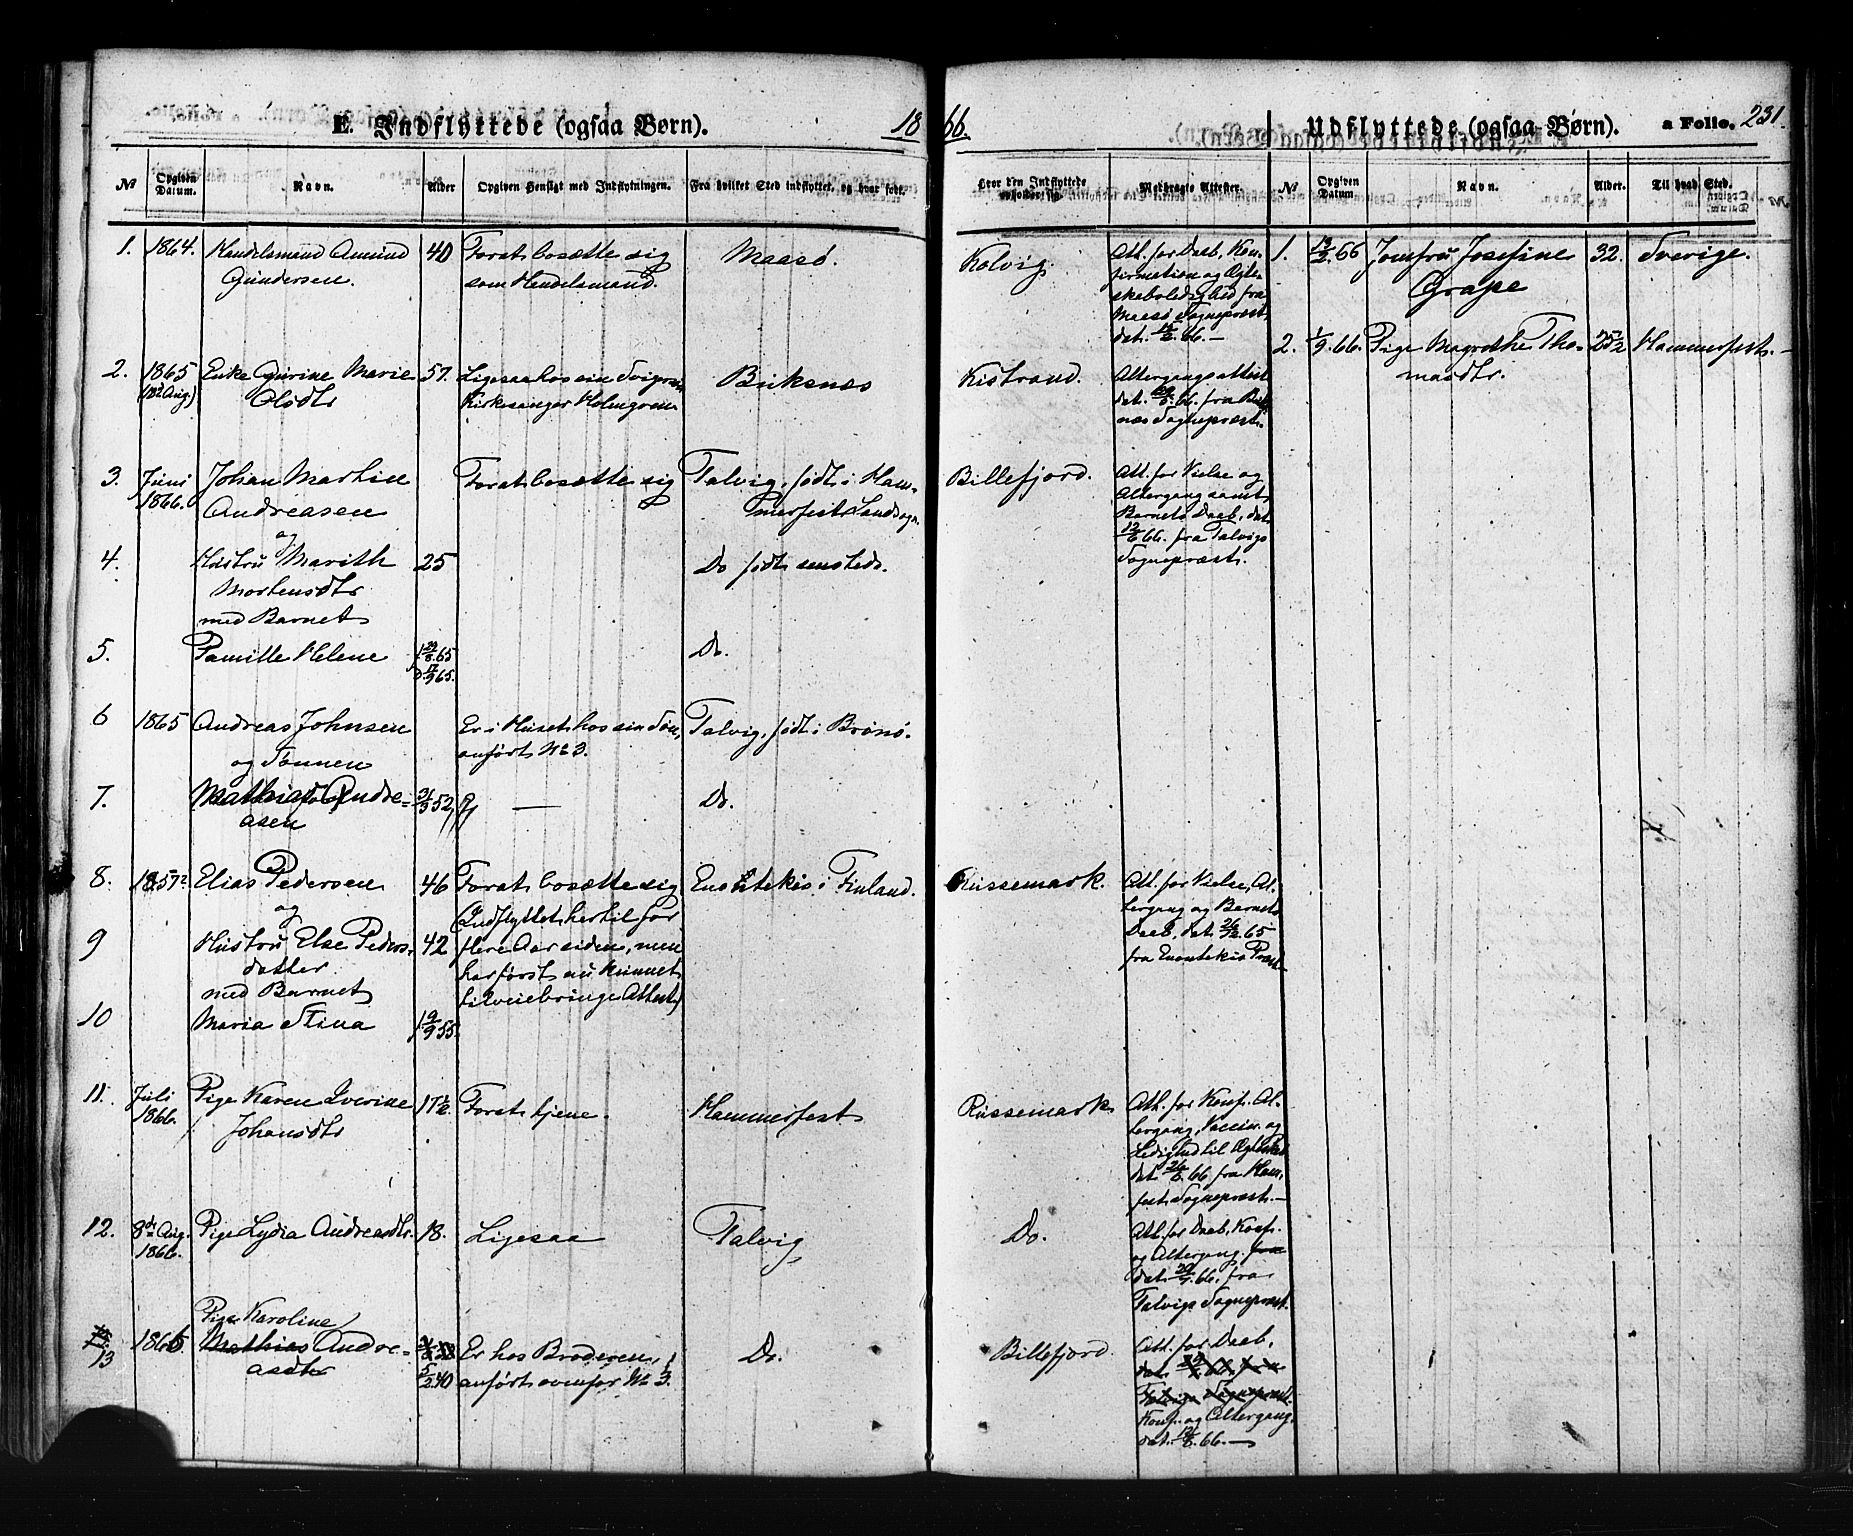 E. Indflyttede (ogsaa Børn). 1866. Udflyttede (ogsaa Børn). a Folio. 231.
No Opgiven Datum. Navn. Alder Opgiven Hensigt med Indflytningen. Fra hvilket Sted indflyttet, og hvor født. Hvor den Indflyttede opholder sig. Medbragte Attester. No Opgiven Datum. Navn. Alder. Til hvad Sted.
1. 1864. Handelsmand Amund
Gundersen.
40 For at bosætte sig
som Handelsmand.
Maasø.
Kolvig.
Att. for Daab, Kon-
firmation og Ægte-
skabsledighed fra
Maasø Sognepræst,
dat. 66. —
2. 1865
(18de Aug.)
Enke Gurine Marie
Olsdtr
57. Ligesaa hos sin Svigersøn
Kirkesanger Holmgren
Buksnæs
Kistrand.
Altergangsattest
dat. 66. fra Buks-
næs Sognepræst.
3. Juni
1866.
Johan Martin
Andreasen
og
For at bosætte sig
Talvig, født i Ham-
merfest Landsogn.
Billefjord.
Att. for Vielse og
Altergang samt
Barnets Daab, dat.
12/6 66. fra Talvigs
Sognepræst.
4. Hustru Marith
Mortensdtr
med Barnet
25
Do født sammesteds.
5. Pamille Helene
f. 65
D. 65.
Do.
6 1865 Andreas Johnsen
og Sønnen
Er i Huset hos sin Søn,
anført No 3.
Talvig, født i Brønø.
7. Mathias Andre-
asen
31/3 52
—
Do.
8. 1857 Elias Pedersen
og
46 For at bosætte sig
(Indflyttet hertil for
flere Aar siden, men
har først nu kunnet
tilveiebringe Attest)
Enontekis i Finland.
Russemark.
Att. for Vielse, Al-
tergang og Barnets
Daab, dat. 26/12 65
fra Enontekis Præst—
9 Hustru Else Peders-
datter
med Barnet
42
10 Maria Stina
f. 9/9 55.
11. Juli
1866.
Pige Karen Iverine
Johansdtr
17½. For at tjene.
Hammerfest
Russemark
Att. for Konf. Al-
tergang, Vaccin. og
Ledighed til Ægteskab
dat. 26/6 66 fra Ham-
fest Sognepræst.—
12. 8de Aug.
1866.
Pige Lydia Andreasdtr. 18. Ligesaa
Talvig
Do.
Att. for Daab, Konf.
og Altergang fra
dat. 66. fra
Talvigs Sognepræst.
13 1866 Pige Karoline
Mathias Andre-
asdtr
5/2 40
Er hos Broderen,
anført ovenfor No 3.
Do.
Billefjord
Att. for Daab,
dat. 66 fra
Talvigs Sognepræst.
Konf. og Altergang.
dat. 12/6 66.—
1. 13/2 66 Jomfru Josefine
Grape
32. Sverige.
2. 1/9 66. Pige Magrethe Tho-
masdtr.
Hammerfest. —